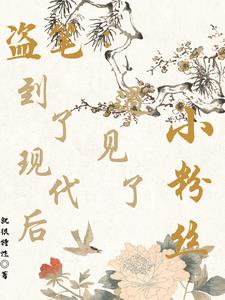 盗笔
到了现代后
遇见了
小粉丝
就很特性◎著